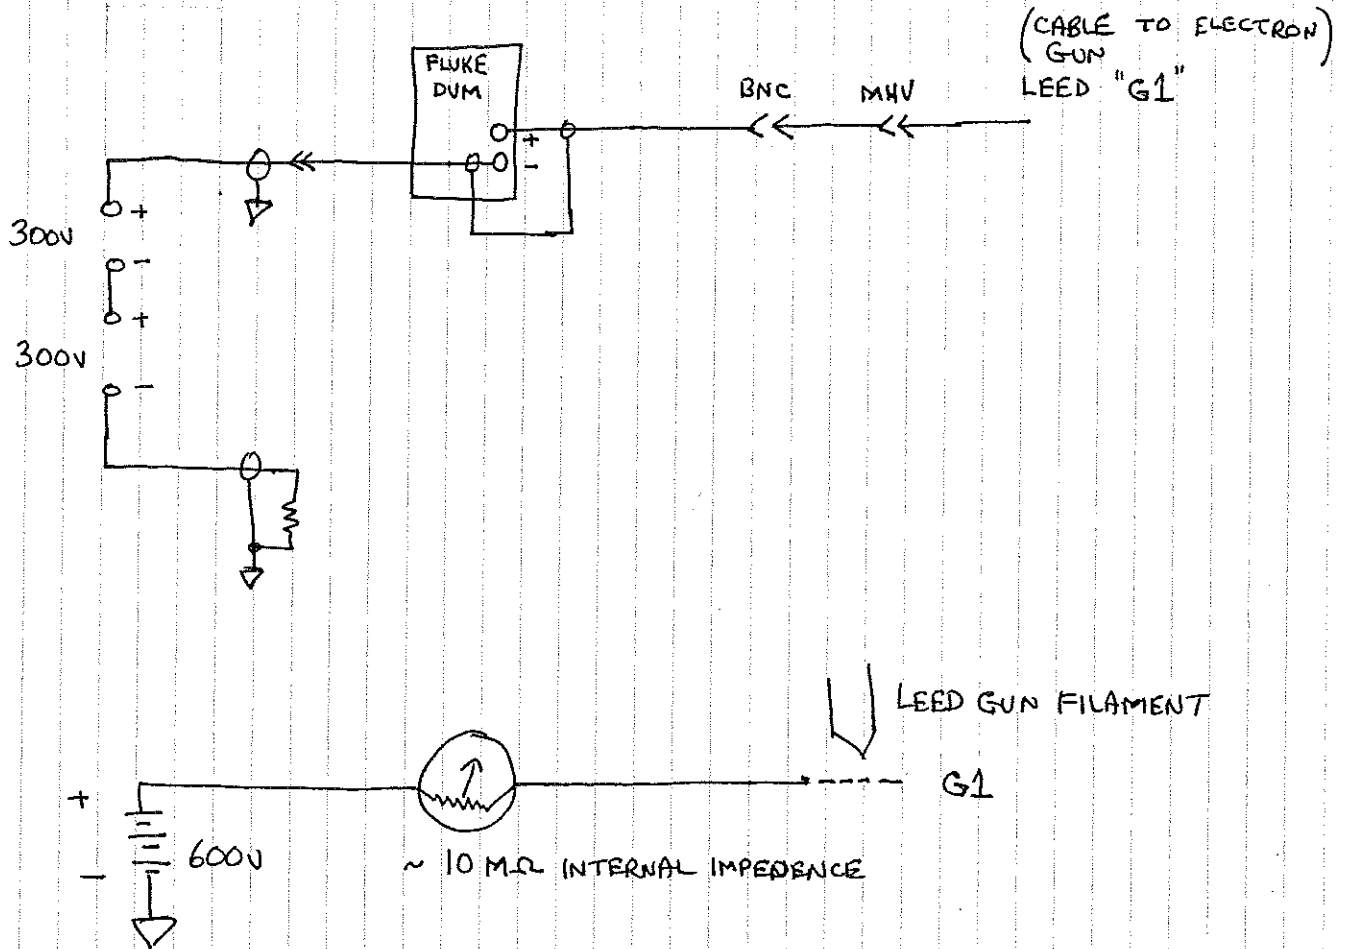 (CABLE TO ELECTRON)
GUN
LEED "G1"
FLUKE
DVM
BNC
MHV
+
-
+
300V
-
+
300V
-
LEED GUN FILAMENT
G1
+
600V
-
~ 10 MΩ INTERNAL IMPEDENCE